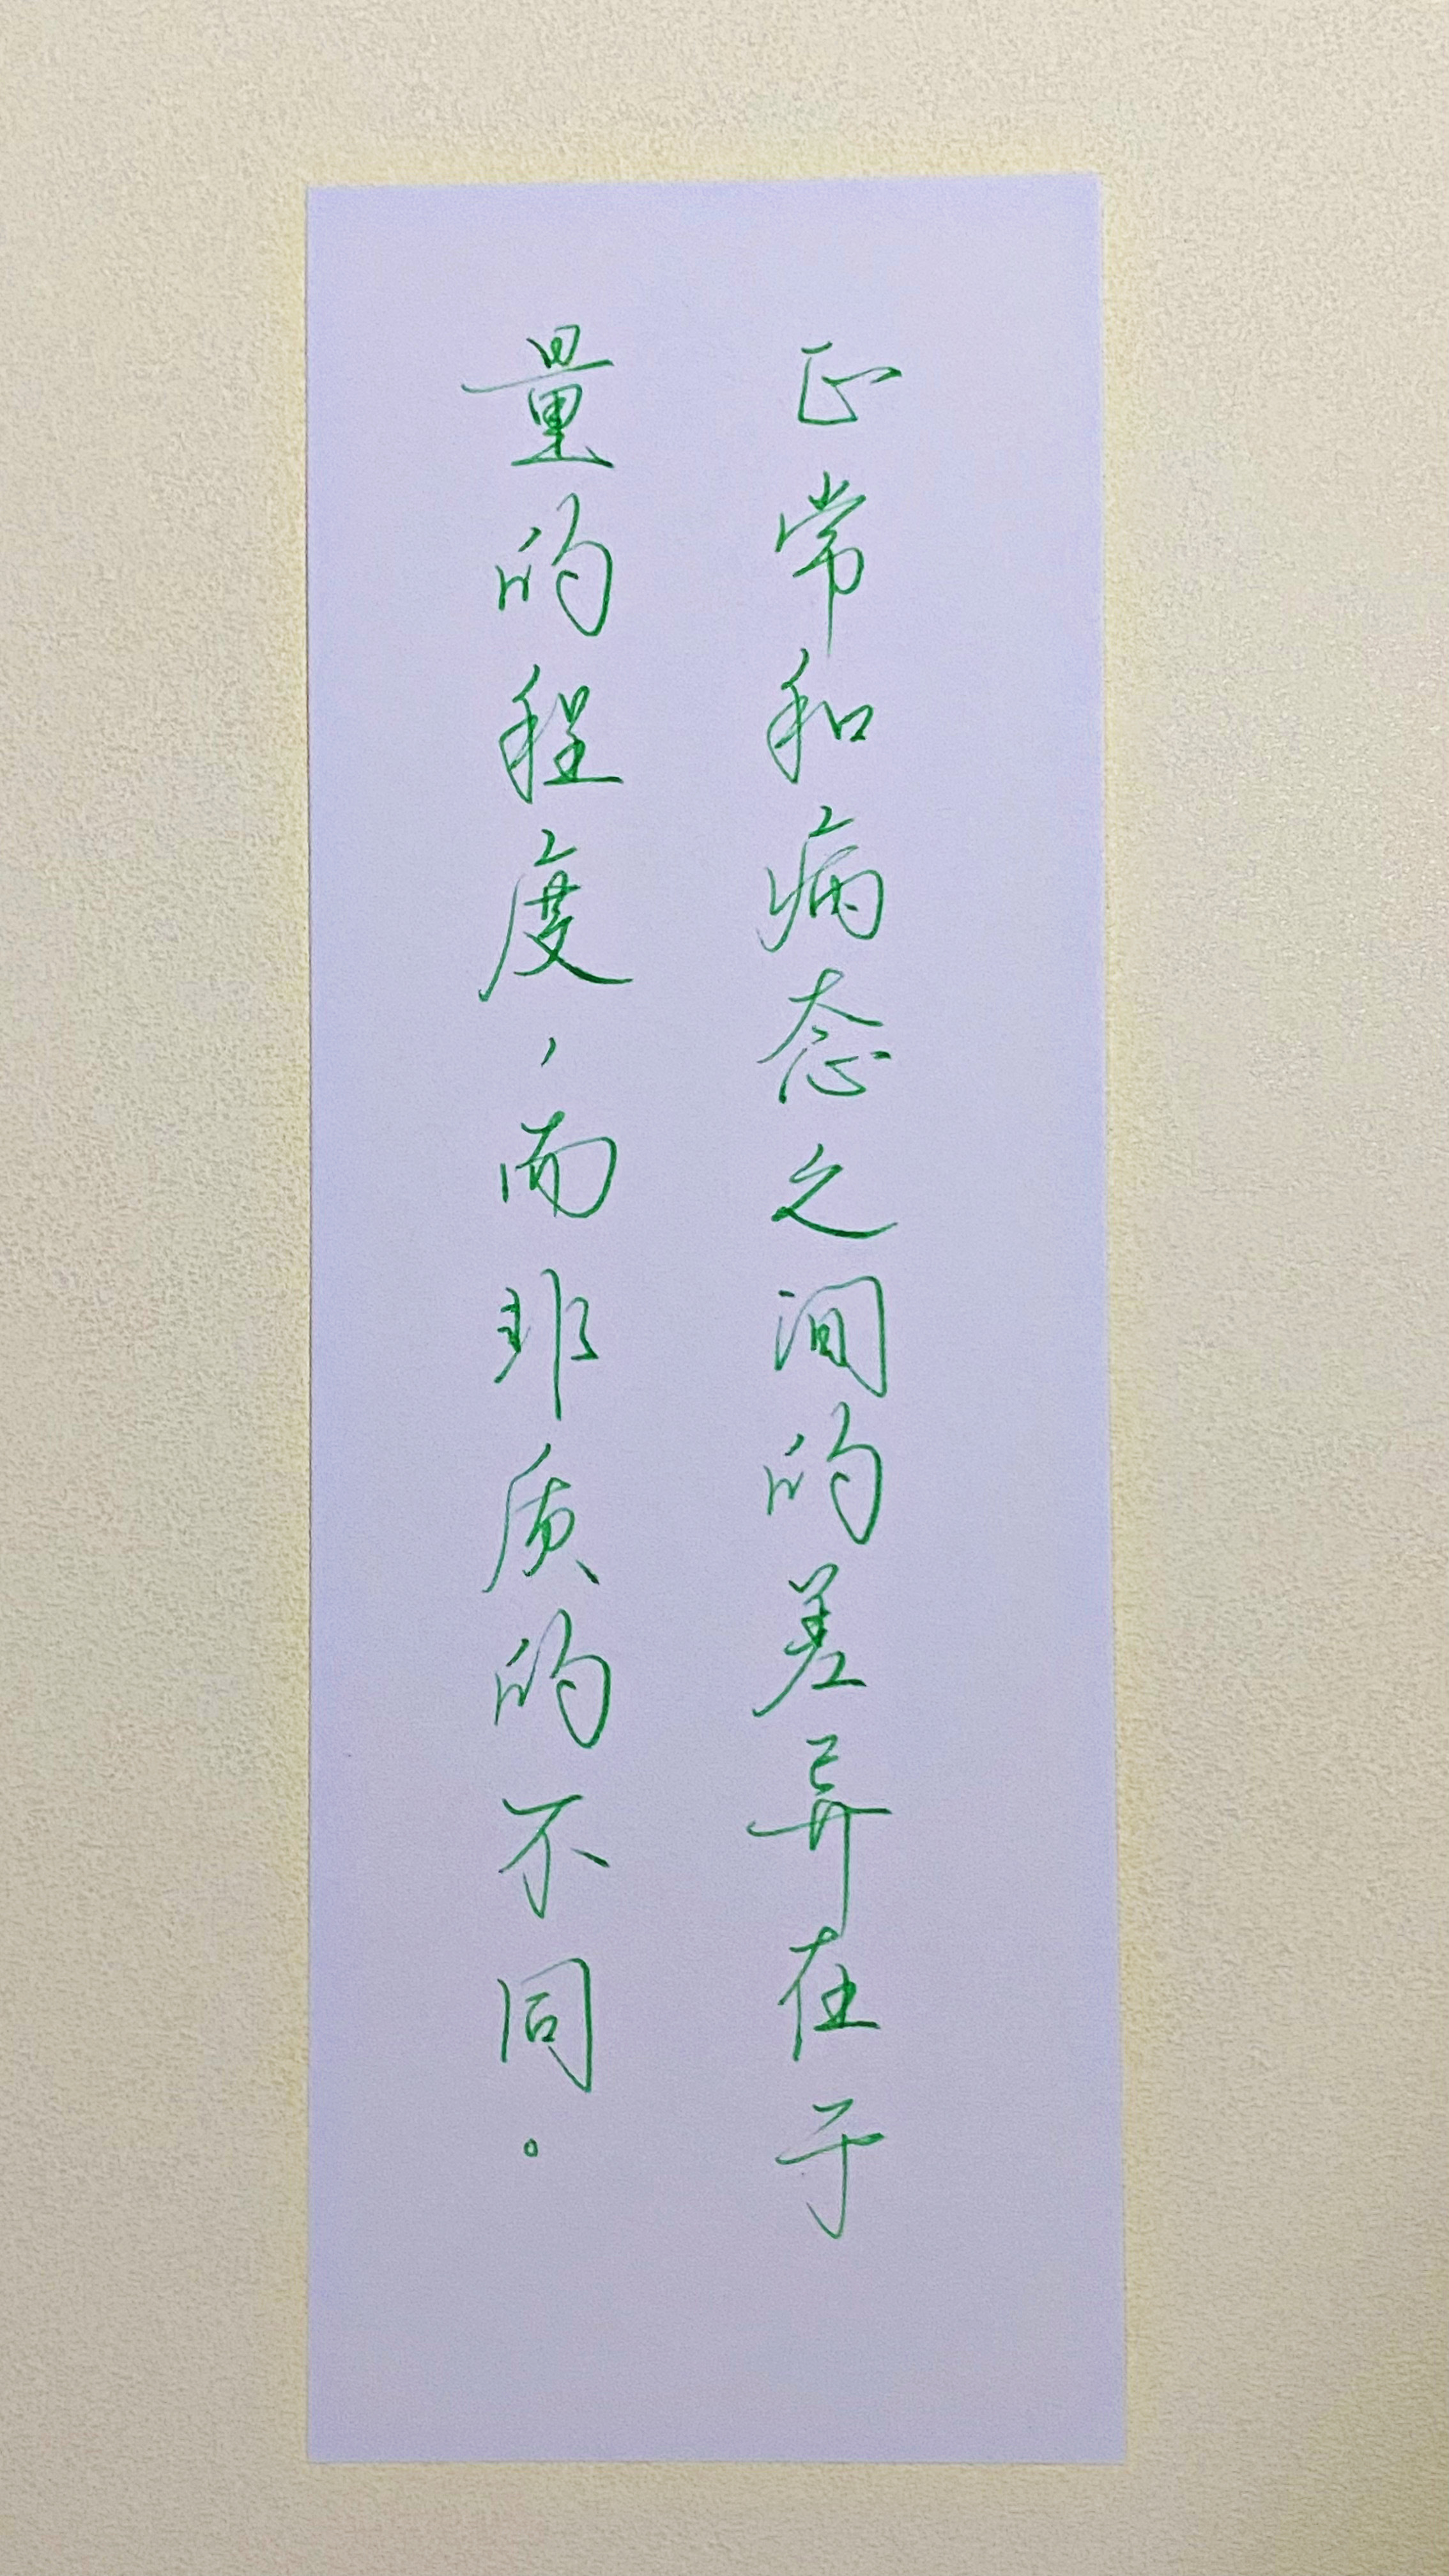 正常和病态之间的差异在于
量的程度，而非质的不同。